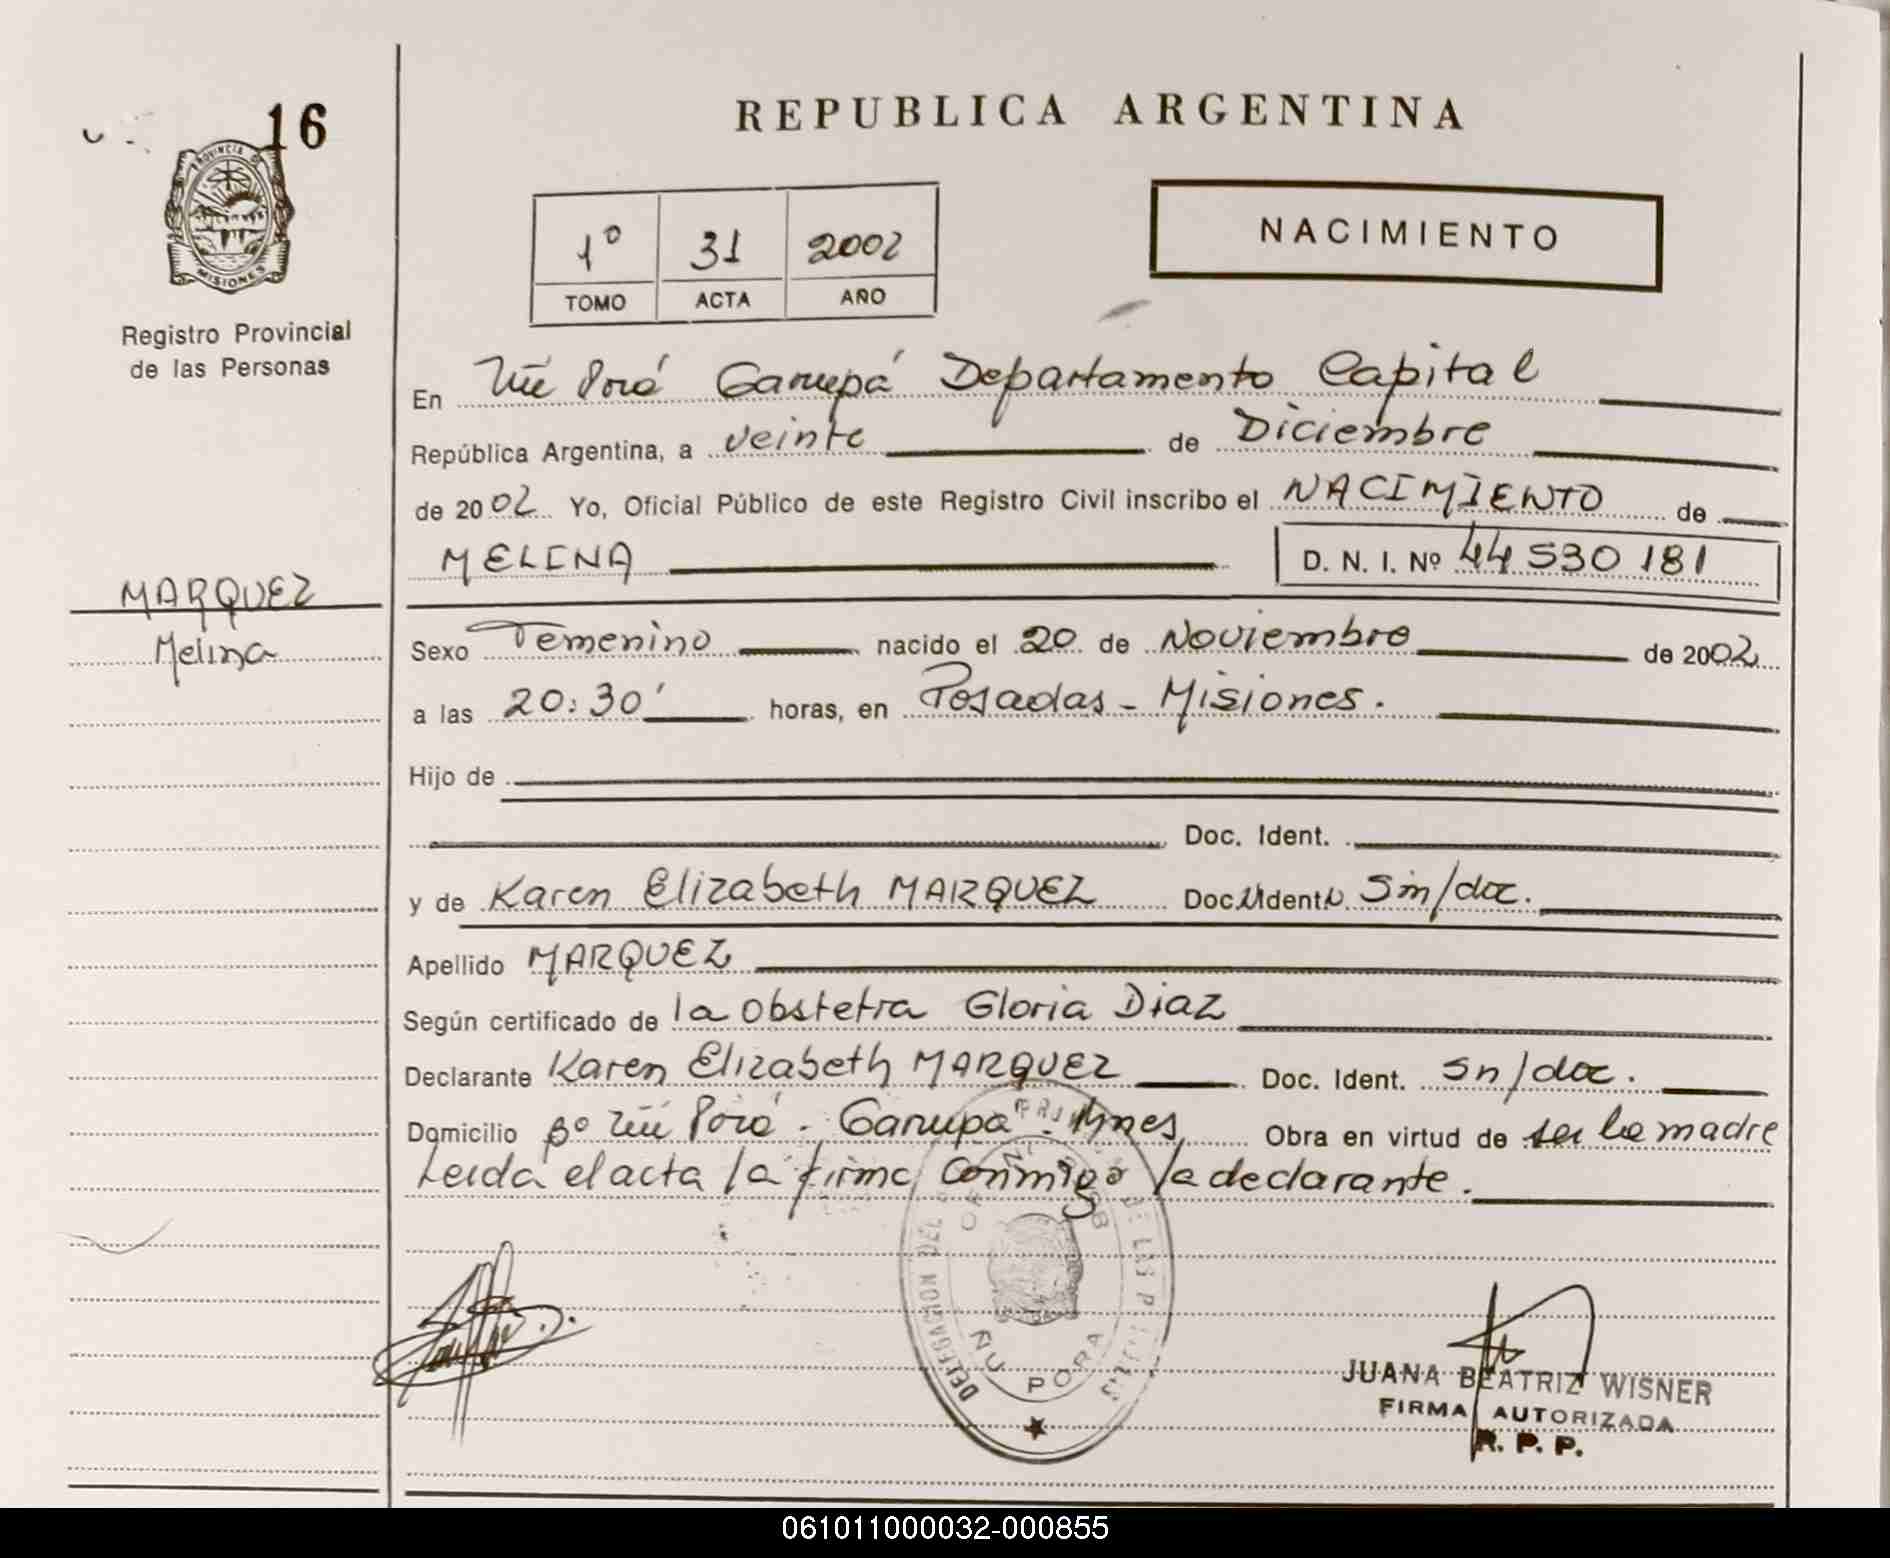 16
PROVINCIA DE
MISIONES
Registro Provincial
de las Personas
MARQUEZ
Melina
REPUBLICA ARGENTINA
1º 31 2002
TOMO ACTA AÑO
NACIMIENTO
En Ñu Porá Garupá Departamento Capital
República Argentina, a veinte de Diciembre
de 2002 Yo, Oficial Público de este Registro Civil inscribo el NACIMIENTO de
MELINA D. N. I. Nº 44 530 181
Sexo Femenino nacido el 20 de Noviembre de 2002
a las 20:30' horas, en Posadas - Misiones.
Hijo de
Doc. Ident.
y de Karen Elizabeth MARQUEZ Doc. Ident. Sin/doc.
Apellido MARQUEZ
Según certificado de la obstetra Gloria Diaz
Declarante Karen Elizabeth MARQUEZ Doc. Ident. Sn/doc.
Domicilio Bº Ñu Porá - Garupá - Mnes Obra en virtud de ser la madre
Leida el acta la firma conmigo la declarante.
DELEGACION DEL
DE LAS
ÑU PORA
JUANA BEATRIZ WISNER
FIRMA AUTORIZADA
R. P. P.
061011000032-000855